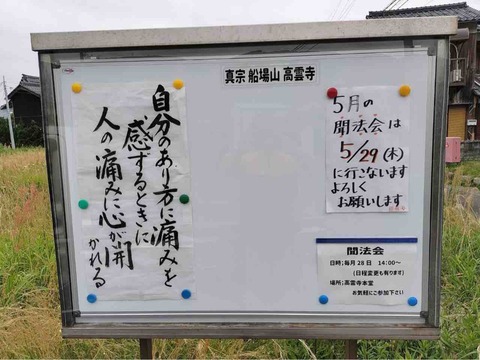 真宗 船場山 高雲寺
自分のあり方に痛みを
感ずるときに
人の痛みに心が開
かれる
5月の
聞法会は
5/29(木)
に行こないます
よろしく
お願いします
聞法会
日時:毎月28日 14:00~
(日程変更も有ります)
場所:高雲寺本堂
お気軽にご参加下さい